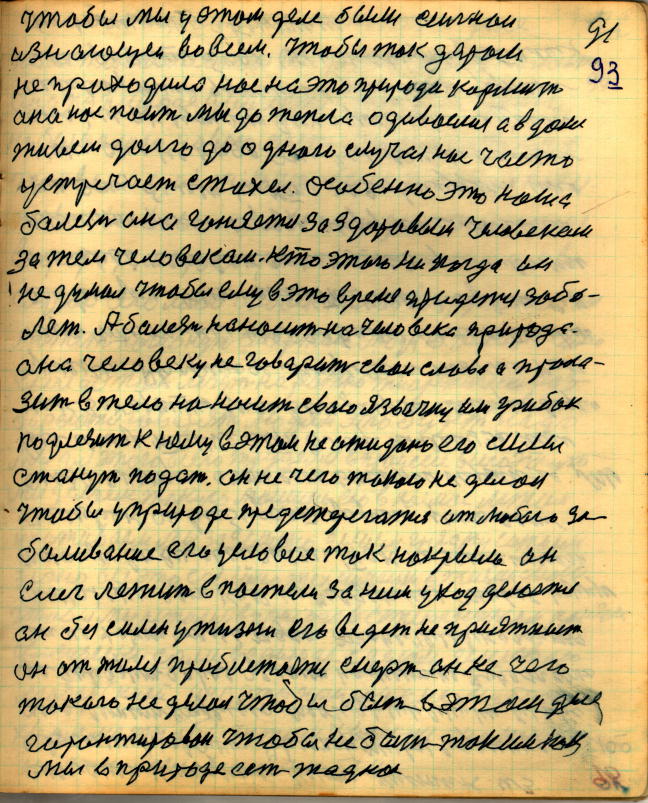 91
93
чтобы мы у этом деле были сильнои
изнающуи вовсем. чтобы так даром
не проходила нас на это природа кормит
она нас поит мы до тепла одиваемся а в доми
живем долго до одного случая нас часто
устречает стихея. особенно это наша
болезн она гоняется за здоровым человеком
за тем человеком. кто этого никогда он
не думал чтобы ему в это время придется забо-
лет. А болезн наносит на человека природа.
она человеку не говарит свои слова а прола-
зит в тело наносит сваю язвачку или грибок
подлезит к нему в этом не ожидано его силы
станут подат. он не чего такого не делал
чтобы у природе предстерегатся от любого за-
боливание его условие так накрыла он
слег лежит в постели за ним уход делается
он без силен у жизни его ведет не приятност
он от жил приблежается смерт он не чего
такого не делал чтобы быт в этом деле
гарантирован чтобы не быт таким как
мы в природе ест